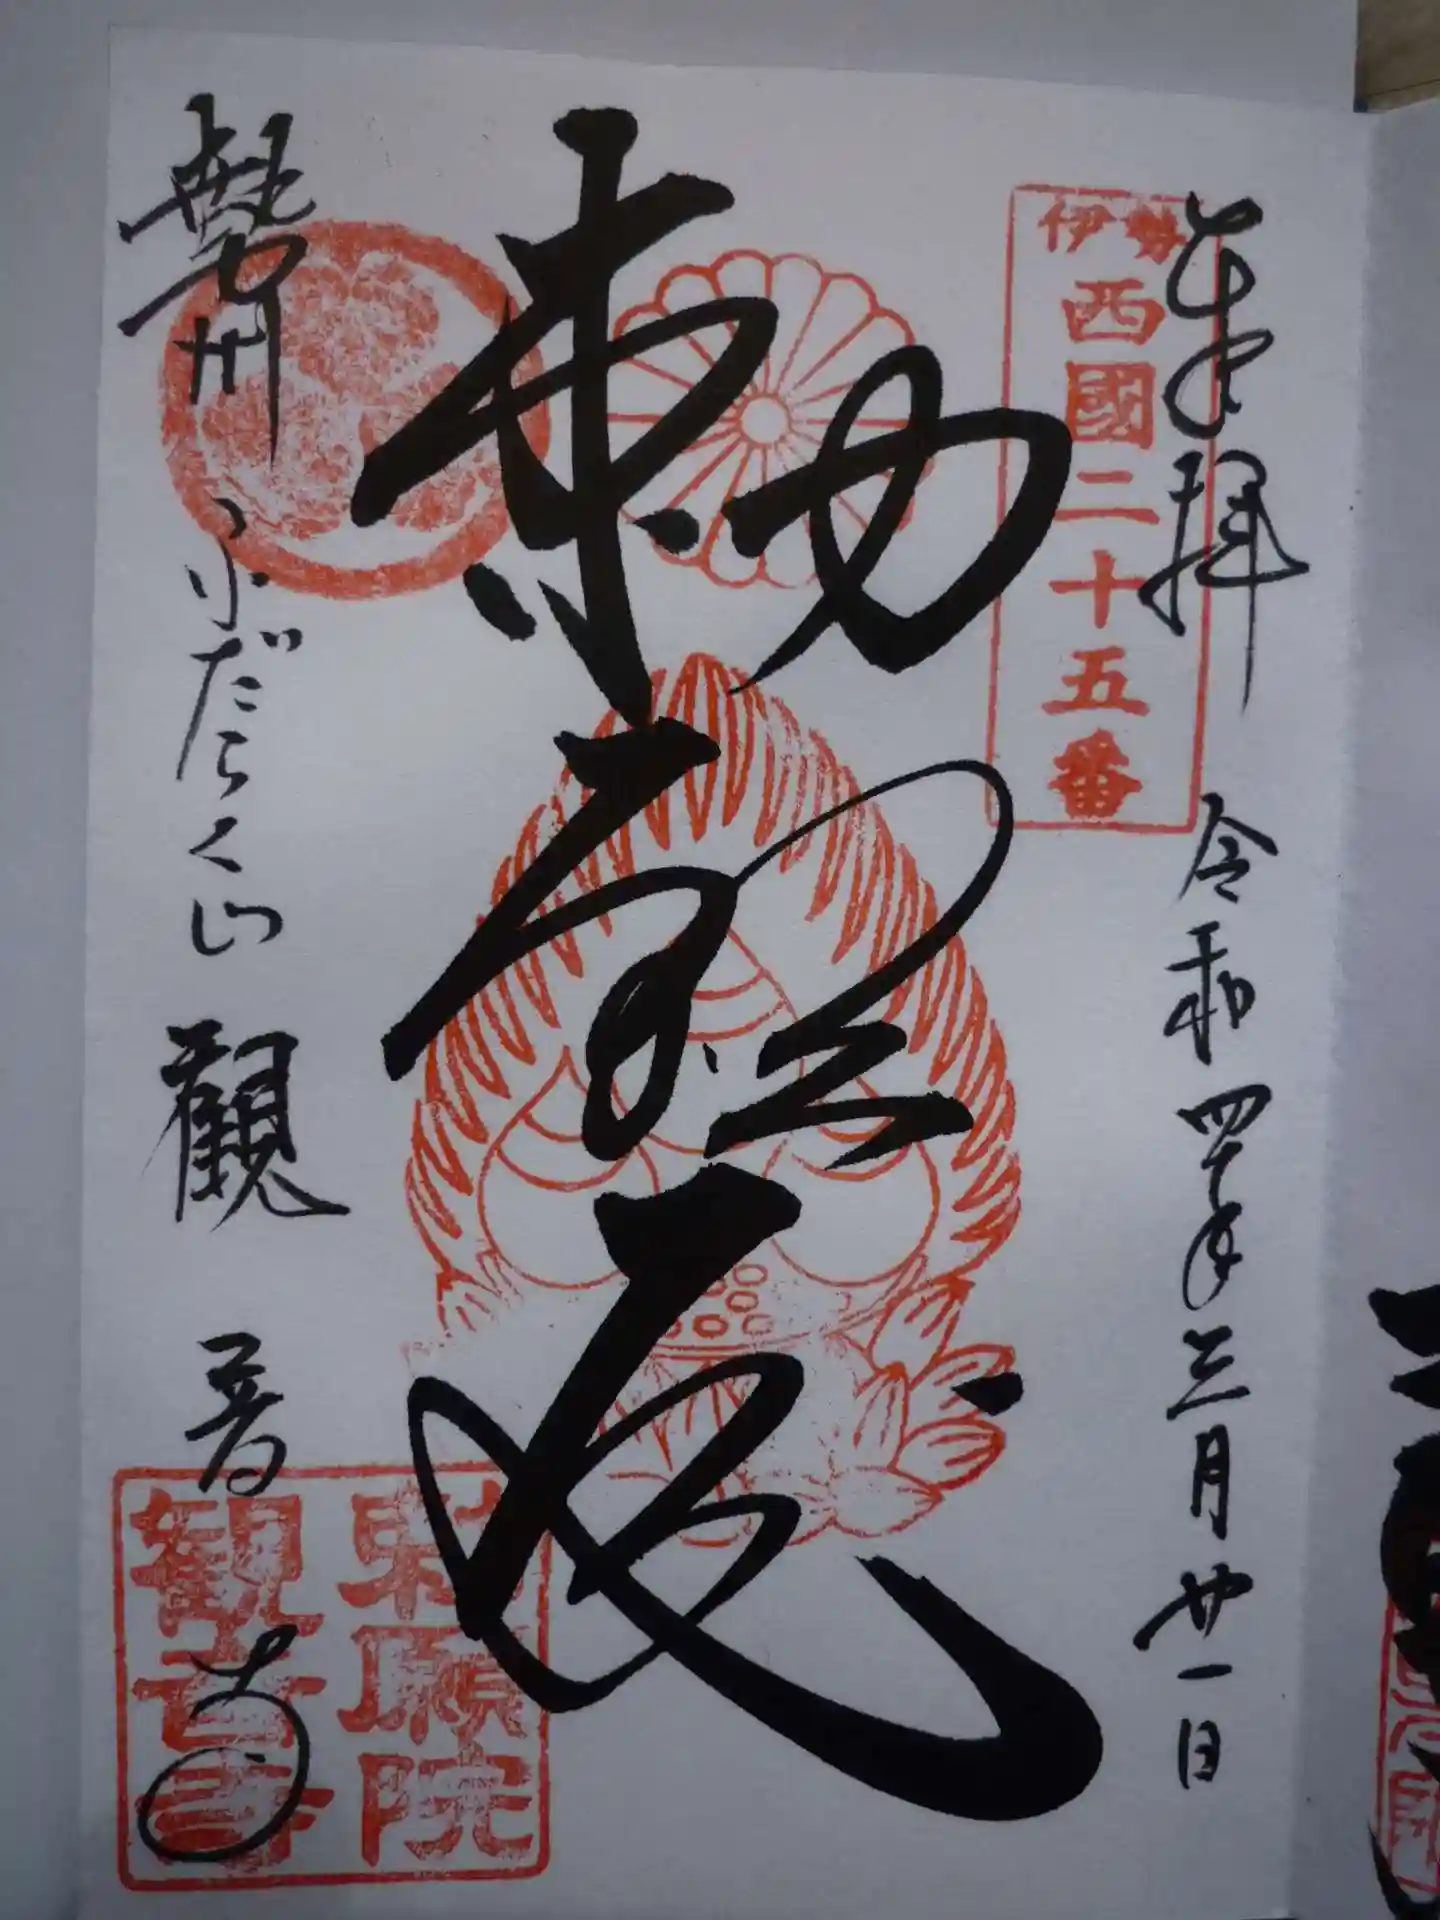 奉拝 令和四年三月廿一日
伊勢
西國二十五番
勅願
勢州 ふだらく山 觀音寺
勅願院
観音寺